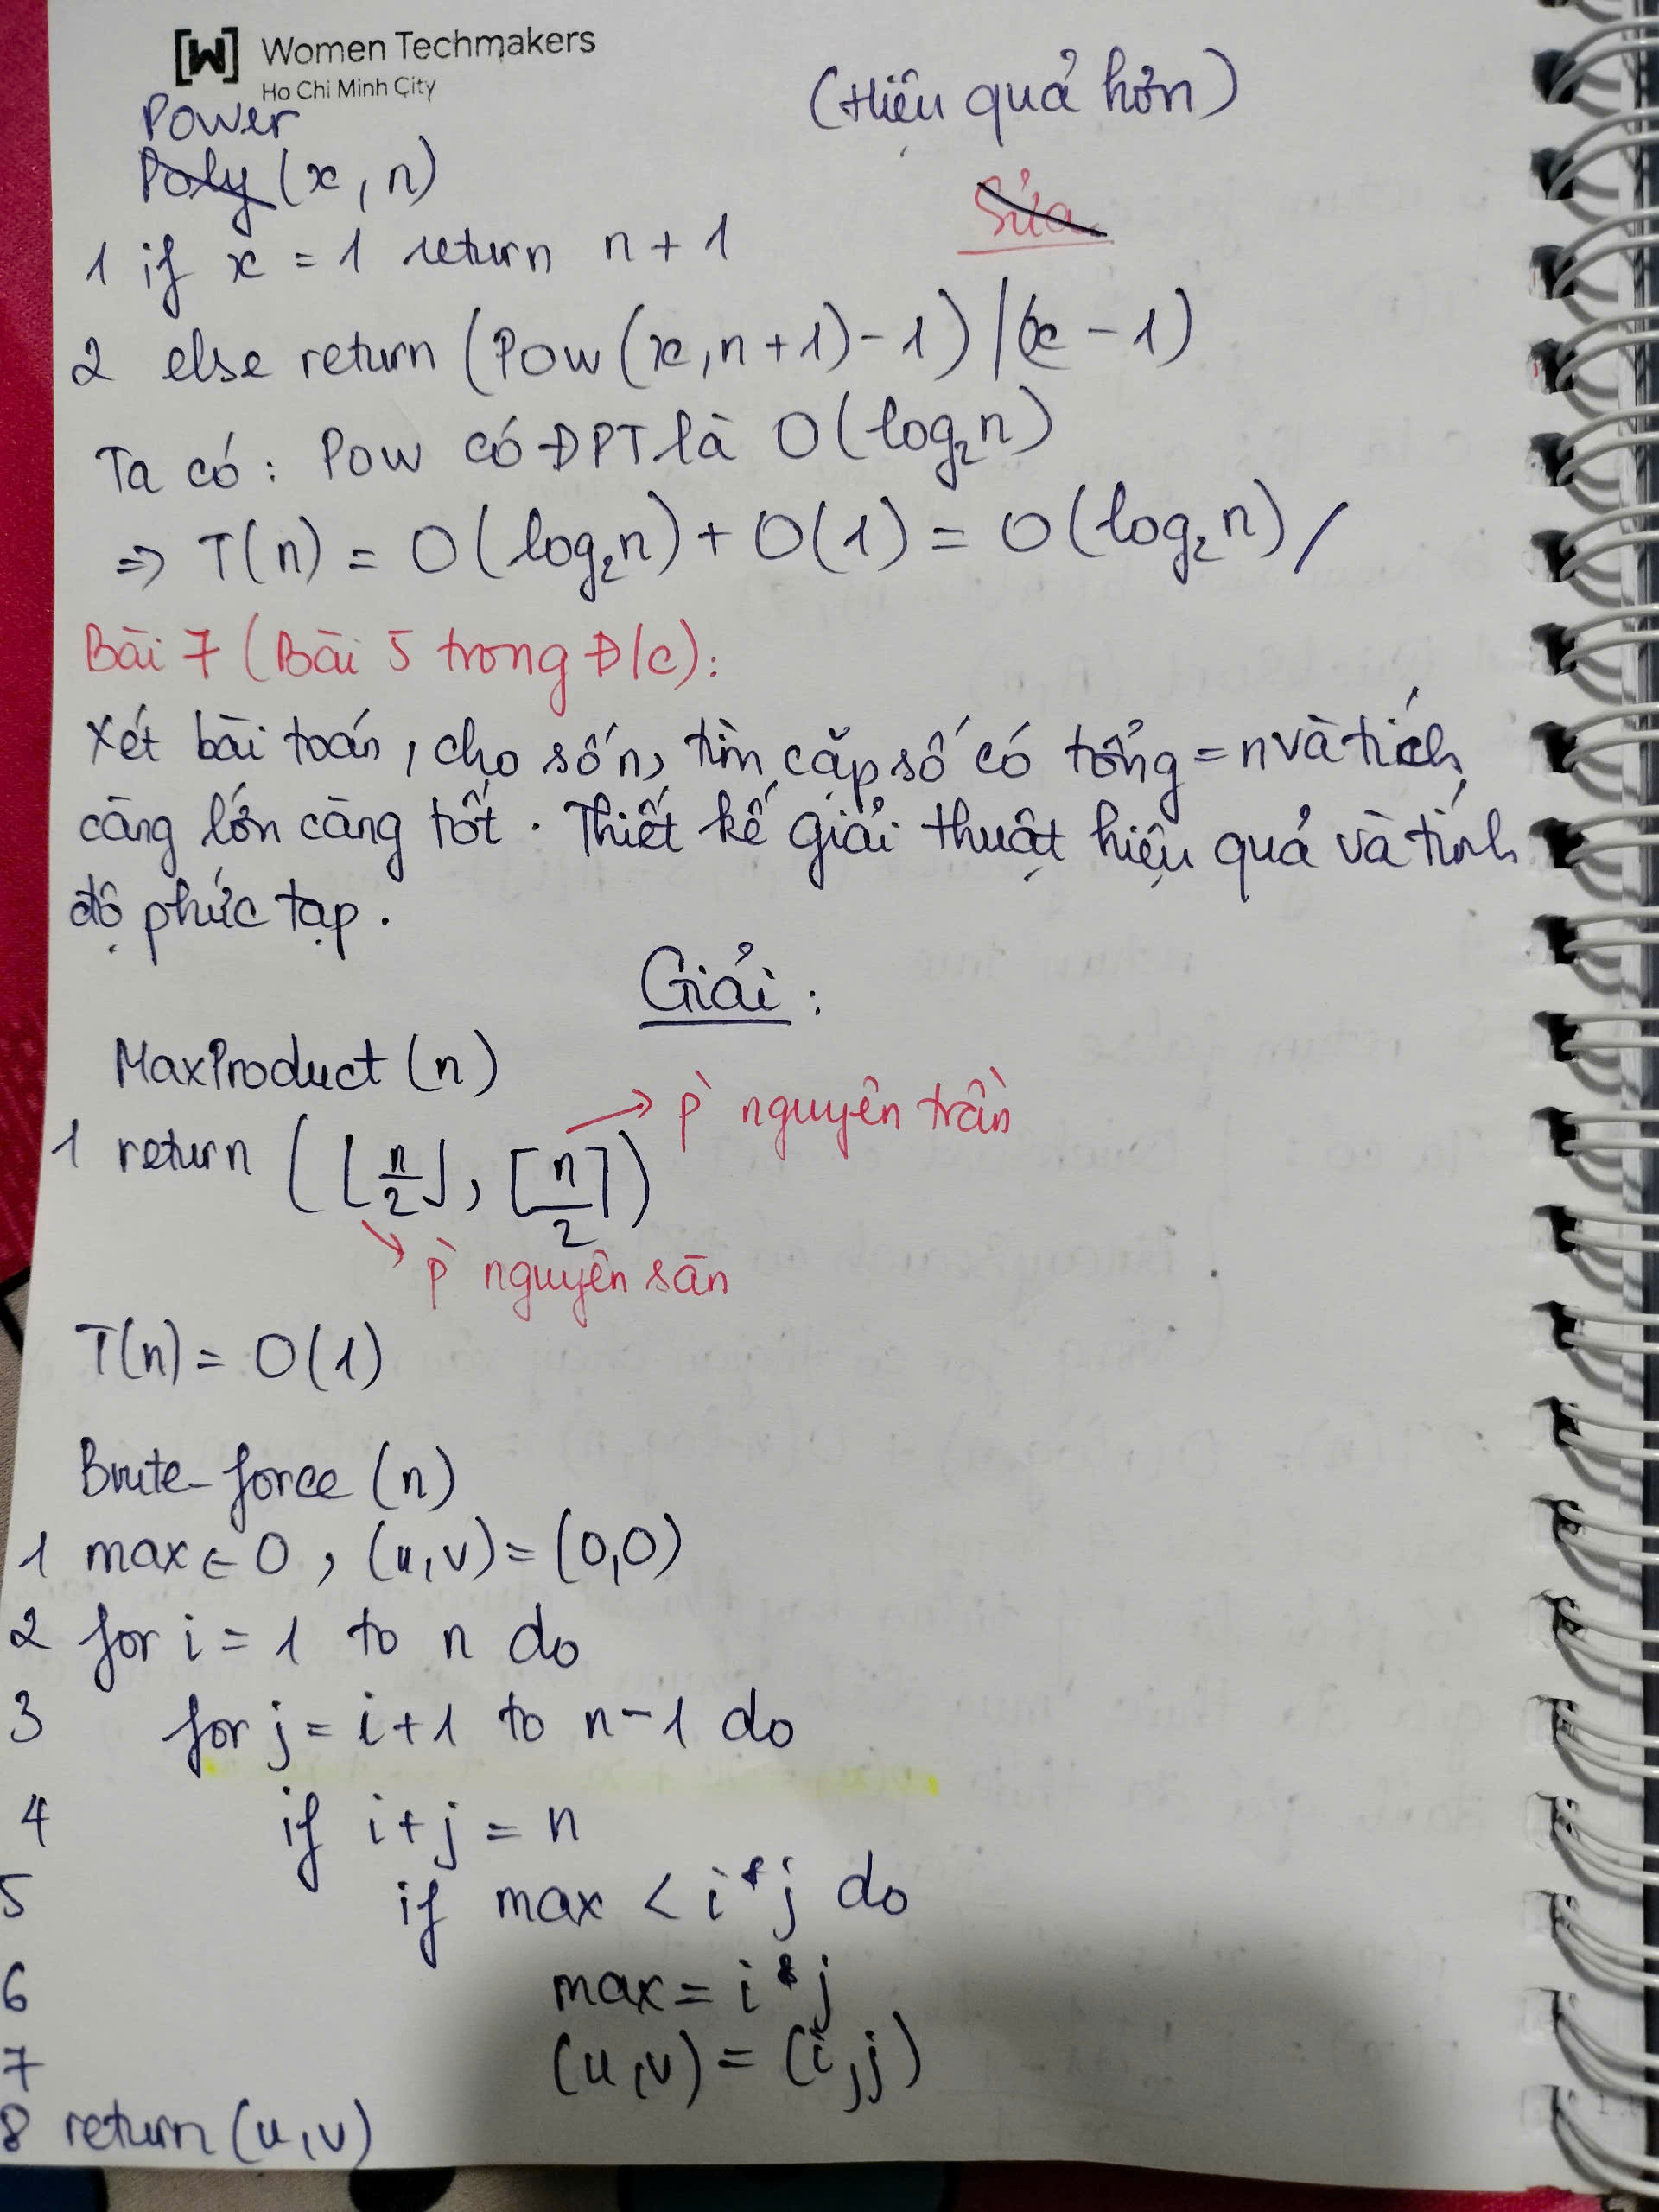 [W] Women Techmakers
Ho Chi Minh City
(Hiệu quả hơn)
Power
Poly (x, n)
Sửa
1 if x = 1 return n + 1
2 else return (Pow(x, n + 1) - 1) / (x - 1)
Ta có: Pow có ĐPT là O(log₂n)
⇒ T(n) = O(log₂n) + O(1) = O(log₂n)/
Bài 7 (Bài 5 trong Đ/c):
Xét bài toán, cho số n, tìm cặp số có tổng = n và tích
càng lớn càng tốt. Thiết kế giải thuật hiệu quả và tính
độ phức tạp.
Giải:
MaxProduct (n)
→ p̀ nguyên trần
1 return (⌊n/2⌋, ⌈n/2⌉)
→ p̀ nguyên sàn
T(n) = O(1)
Brute-force (n)
1 max ← 0, (u,v) = (0,0)
2 for i = 1 to n do
3 for j = i + 1 to n - 1 do
4 if i + j = n
5 if max < i * j do
6 max = i * j
7 (u,v) = (i,j)
8 return (u,v)